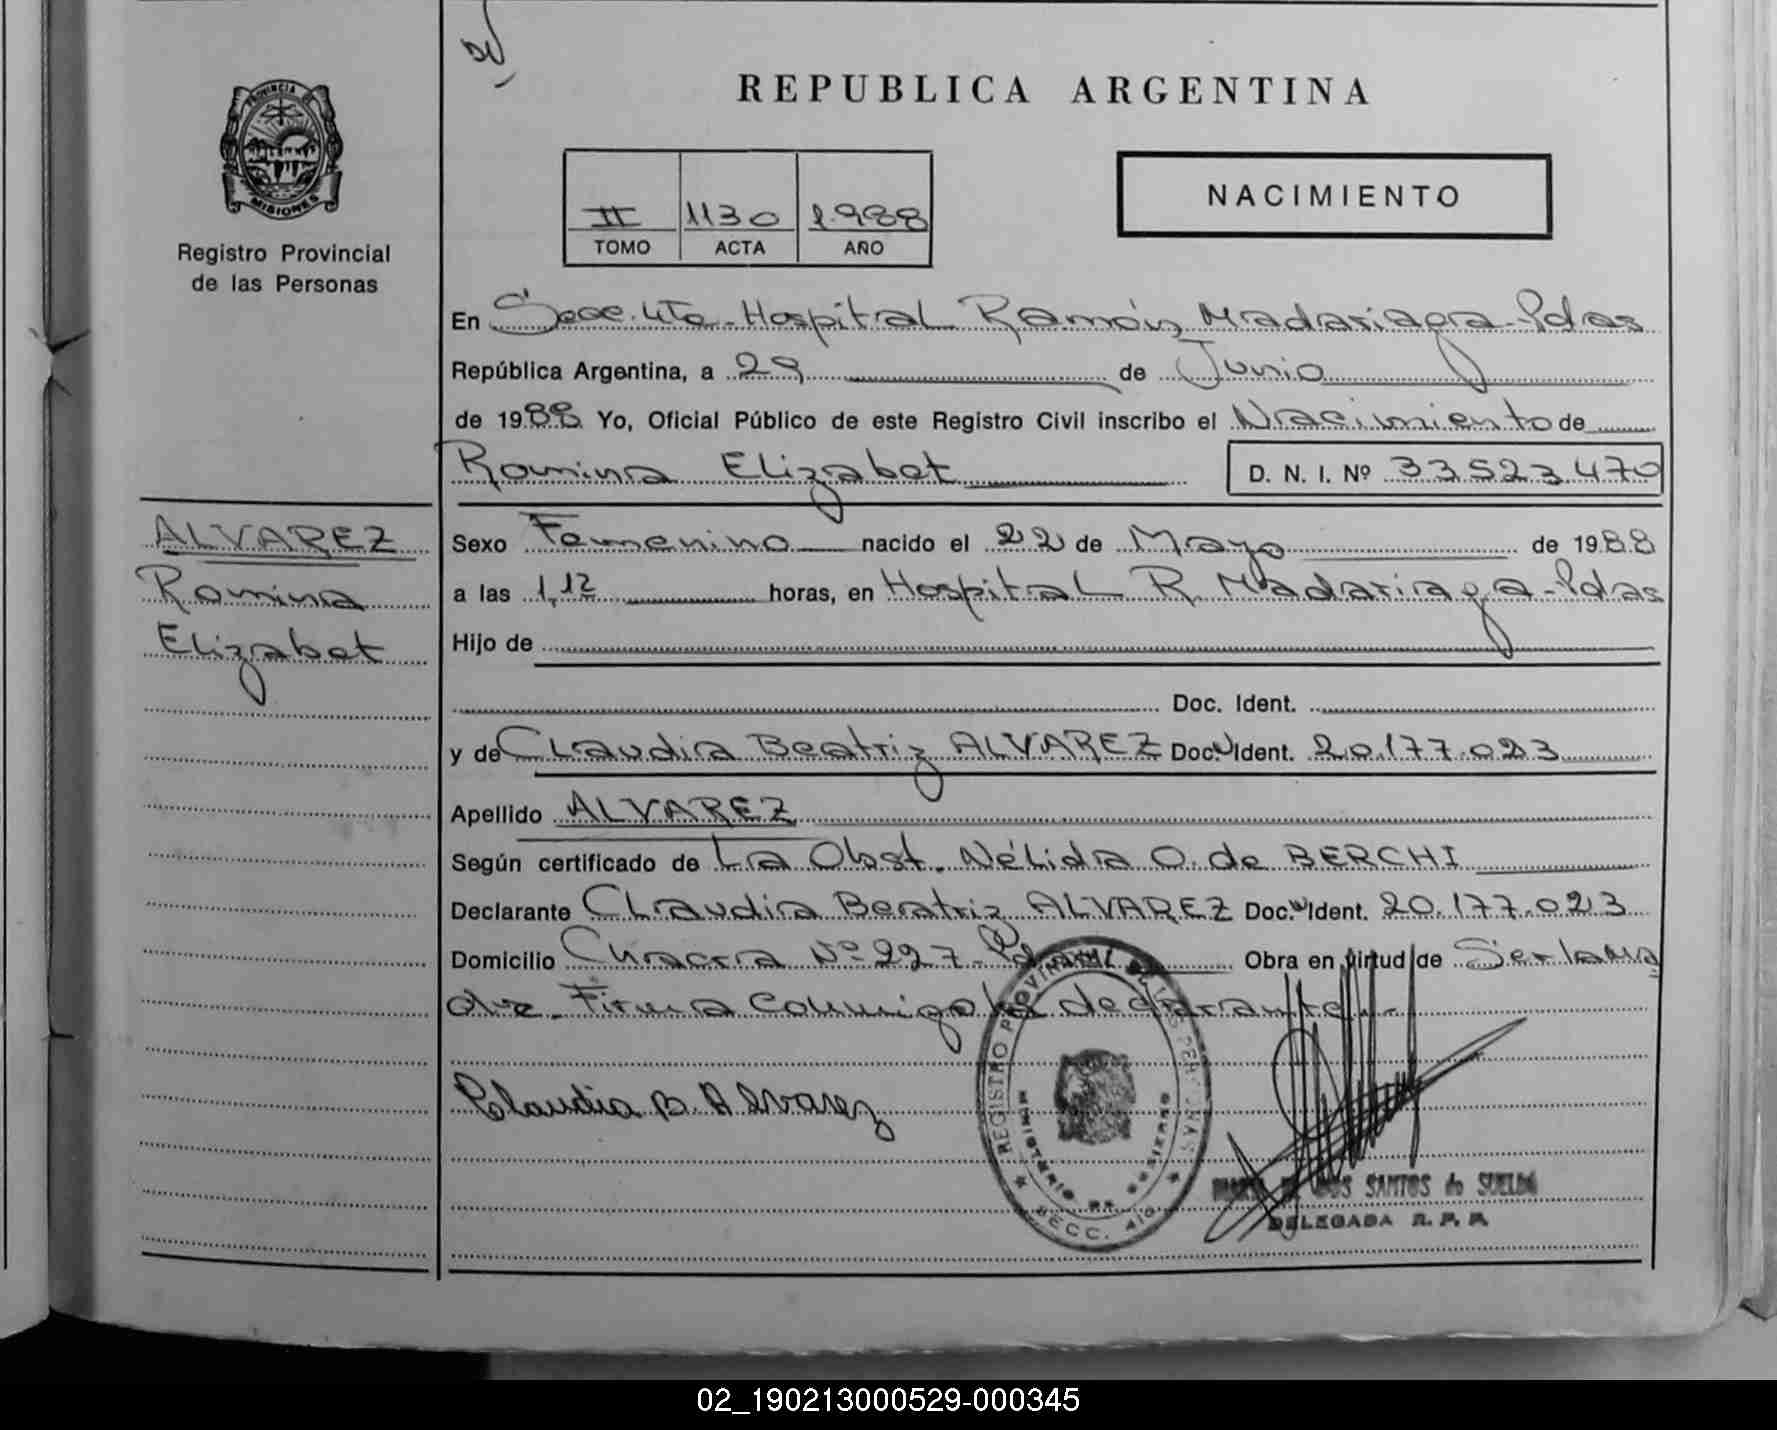 REPUBLICA ARGENTINA
PROVINCIA DE
MISIONES
Registro Provincial
de las Personas
II 1130 1.988
TOMO ACTA AÑO
NACIMIENTO
En Secc. 4ta - Hospital Ramón Madariaga - Pdas
República Argentina, a 29 de Junio
de 1988 Yo, Oficial Público de este Registro Civil inscribo el Nacimiento de
Romina Elizabet D. N. I. Nº 33523.470
ALVAREZ
Romina
Elizabet
Sexo Femenino nacido el 22 de Mayo de 1988
a las 1,12 horas, en Hospital R. Madariaga - Pdas
Hijo de
Doc. Ident.
y de Claudia Beatriz ALVAREZ Doc. Ident. 20.177.023
Apellido ALVAREZ
Según certificado de La Obst. Nélida O. de BERCHI
Declarante Claudia Beatriz ALVAREZ Doc. Ident. 20.177.023
Domicilio Chacra Nº 227 - Pdas Obra en virtud de Ser la Ma
dre. Firma conmigo la declarante.-
Claudia B. Alvarez
REGISTRO PROVINCIAL DE LAS PERSONAS
MINISTERIO DE GOBIERNO
SECC. 4
DOS SANTOS de SUELDO
DELEGADA R. P. P.
02_190213000529-000345